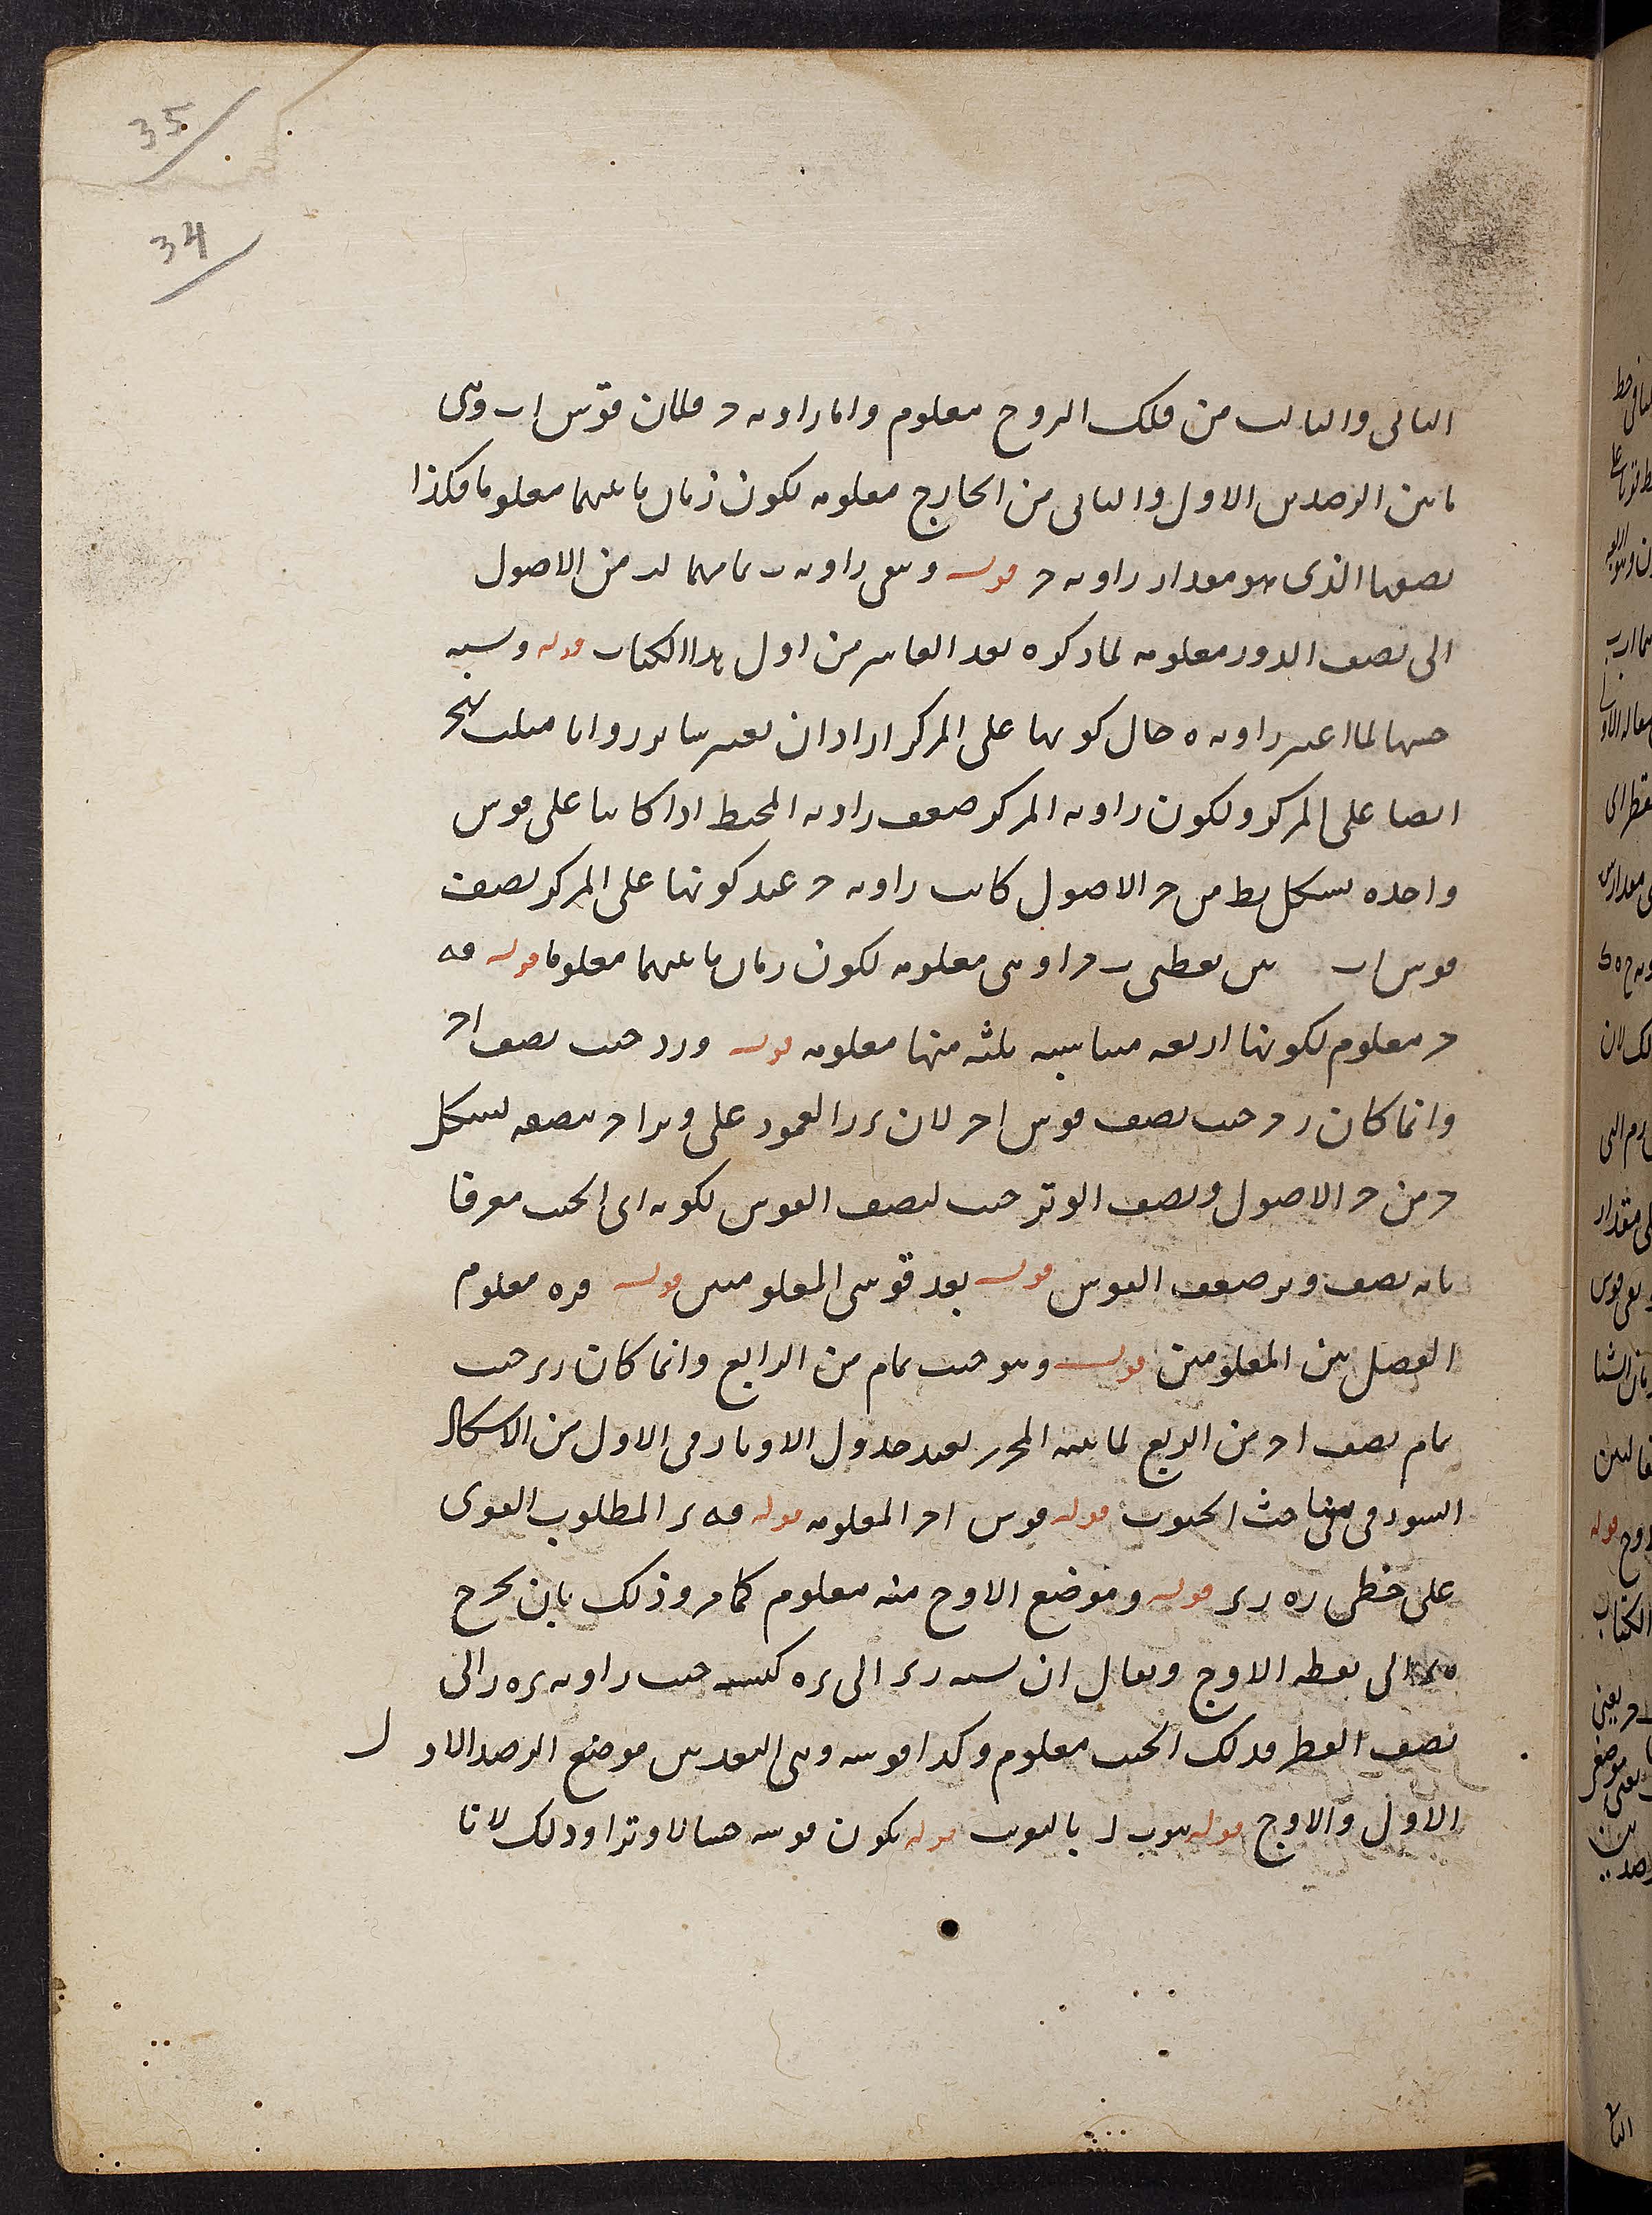 35
34
الثانى والثالث من فلك البروج معلوم واما زاوية ح فلان قوس اب وهى
ما بين الرصدين الاول والثانى من الخارج معلومه لكون زمان ما بينهما معلوما فكذا
نصفها الذى هو مقدار زاويه ح قوله وبقى زاويه ب تمامهما من الاصول
الى نصف الدور معلومه لما ذكره بعد العاشر من اول هذا الكتاب قوله ونسبه
جيبها لما اعتبر زاويه ه حال كونها على المركز اراد ان يعتبر سائر زوايا مثلث
ايضا على المركز ولكون زاويه المركز ضعف زاويه المحيط اذا كانتا على قوس
واحده بشكل يط من ح الاصول كانت زاويه ح عند كونها على المركز نصف
قوس اب بين نقطتى ب ح اوهى معلومه لكون زمان ما بينهما معلوما قوله فه
ح معلوم لكونها اربعه متناسبه ثلثه منها معلومه قوله ورد جيب نصف اح
وانما كان رح جيب نصف قوس اح لان رز العمود على وتر اح ينصفه بشكل
ح من ح الاصول ونصف الوتر جيب لنصف القوس لكونه اى الجيب معرفا
بانه نصف وتر ضعف القوس قوله بعد قوسى المعلومتين قوله فره معلوم
الفضل بين المعلومين قوله وهو جيب تمام من الرابع وانما كان رز جيب
تمام نصف اح من الربع لما بينه المحرر بعيد جدول الاوتار فى الاول من الاشكال
السود فى مباحث الجيوب قوله قوس اح المعلومه قوله فه ز المطلوب القوى
على خطى ره رز قوله وموضع الاوج منه معلوم كما مر وذلك بان يخرج
ه ز الى نقطه الاوج ويقال ان نسبه رز الى ره كنسبه جيب زاويه زه ر الى
نصف القطر فذلك الجيب معلوم وكذا قوسه وهى البعد بين موضع الرصد الاول
الاول والاوج قوله بالثبوت قوله يكون قوسه جيبا لا وترا وذلك لانا